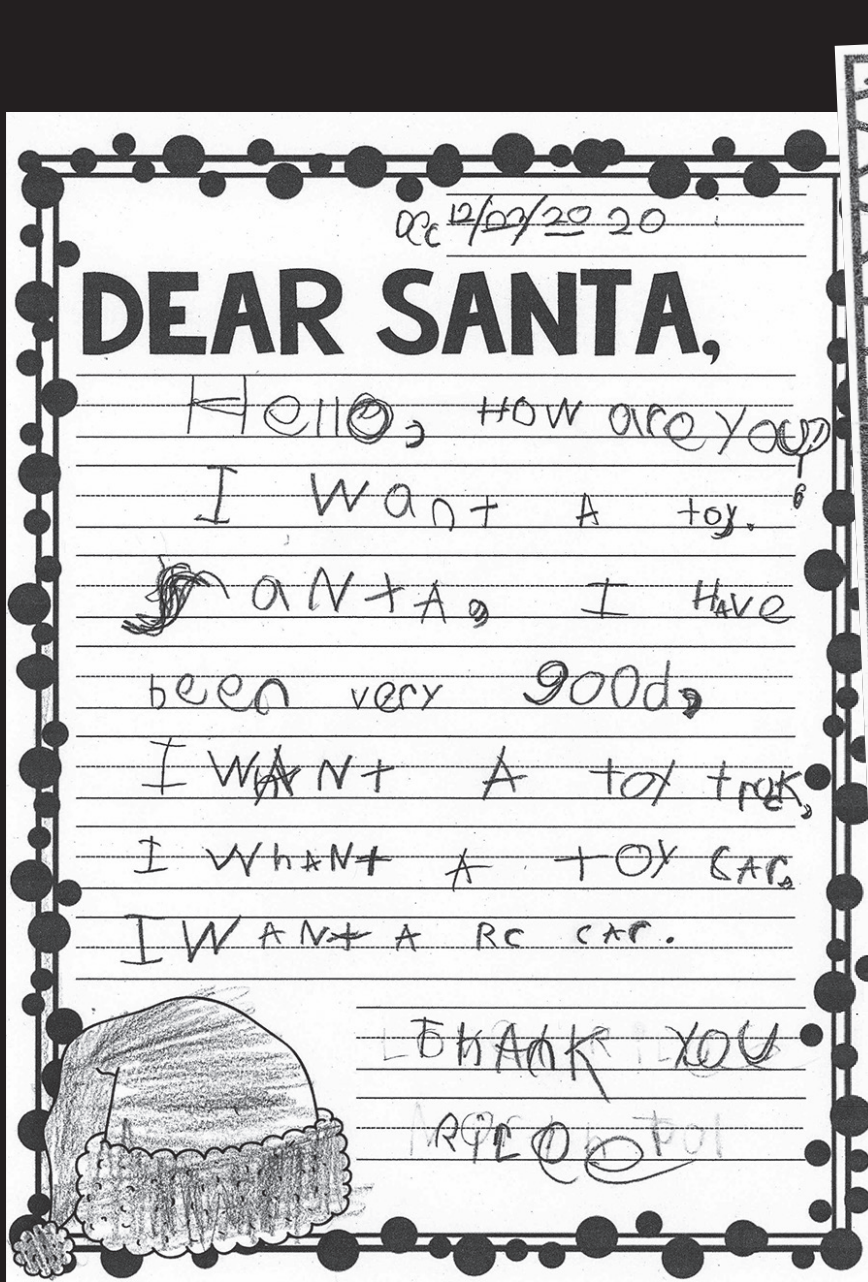 Dec 12/07/20 20
DEAR SANTA,
Hello, HOW are you?
I Want A toy.
SaNtA, I HAVe
been very good,
I WANt A toy trok,
I WhANt A tOY CAr.
I WANt A RC CAr.
ThANK YOU